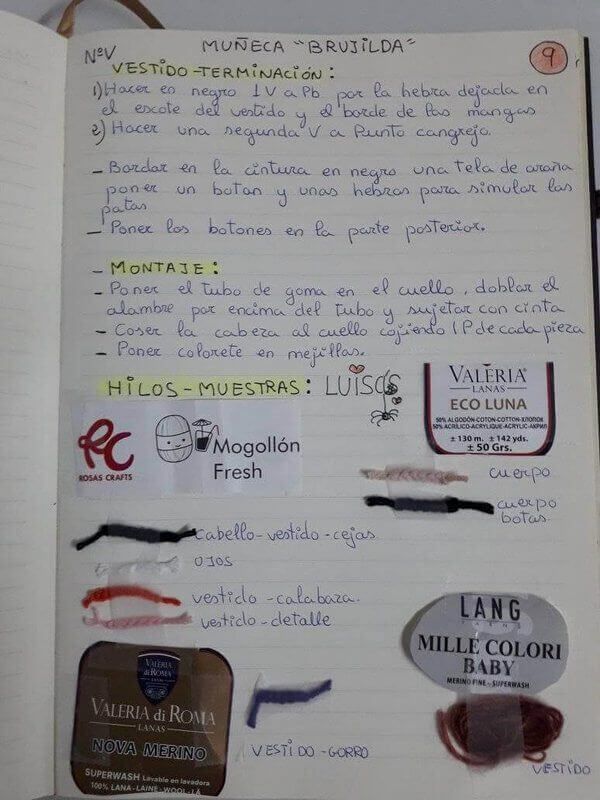 NºV
MUÑECA "BRUJILDA"
9
VESTIDO-TERMINACIÓN:
1) Hacer en negro 1V a Pb por la hebra dejada en
el escote del vestido y el borde de las mangas
2) Hacer una segunda V a Punto cangrejo.
- Bordar en la cintura en negro una tela de araña
poner un boton y unas hebras para simular las
patas
- Poner los botones en la parte posterior.
- MONTAJE:
- Poner el tubo de goma en el cuello, doblar el
alambre por encima del tubo y sujetar con cinta
- Coser la cabeza al cuello cojiendo 1P de cada pieza
- Poner colorete en mejillas.
HILOS-MUESTRAS:
VALERIA
LANAS
ECO LUNA
50% ALGODÓN-COTON-COTTON-ХЛОПОК
50% ACRÍLICO-ACRYLIQUE-ACRYLIC-АКРИЛ
± 130 m. ± 142 yds.
± 50 Grs.
RC
ROSAS CRAFTS
Mogollón
Fresh
cuerpo
cuerpo
botas
cabello-vestido-cejas
OJOS
vestido-calabaza.
vestido-detalle
LANG
YARNS
MILLE COLORI
BABY
MERINO FINE - SUPERWASH
VESTIDO
VALERIA
di ROMA
VALERIA di ROMA
LANAS
NOVA MERINO
SUPERWASH Lavable en lavadora
100% LANA-LAINE-WOOL-LÃ
VESTIDO-GORRO